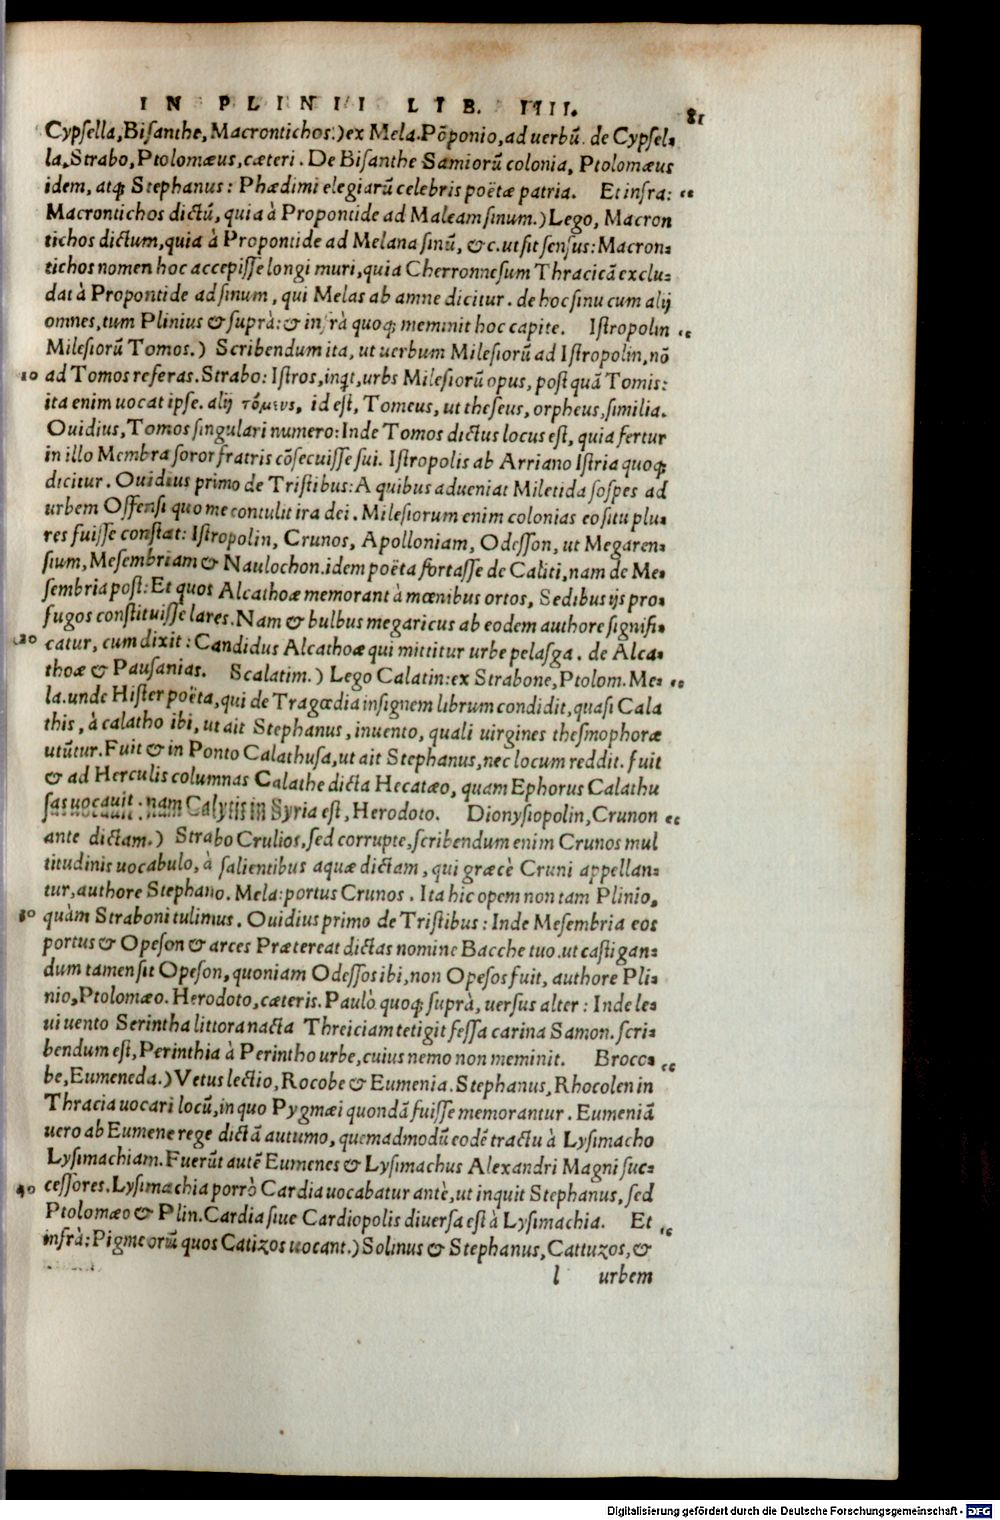 IN PLINII LIB. IIII. 81
Cypsella, Bisanthe, Macrontichos.) ex Mela. Põponio, ad uerbũ. de Cypsel-
la, Strabo, Ptolomæus, cæteri. De Bisanthe Samiorũ colonia, Ptolomæus
idem, atq; Stephanus: Phædimi elegiarũ celebris poëtæ patria. Et infra: “
Macrontichos dictũ, quia à Propontide ad Maleam sinum.) Lego, Macron
tichos dictum, quia à Propontide ad Melana sinũ, &c. ut sit sensus: Macron-
tichos nomen hoc accepisse longi muri, quia Cherronnesum Thracicã exclu-
dat à Propontide ad sinum, qui Melas ab amne dicitur. de hoc sinu cum alij
omnes, tum Plinius & suprà: & infrà quoq; meminit hoc capite. Istropolin “
Milesiorũ Tomos.) Scribendum ita, ut uerbum Milesiorũ ad Istropolin, nõ
10 ad Tomos referas. Strabo: Istros, inqt, urbs Milesiorũ opus, post quã Tomis:
ita enim uocat ipse. alij τόμευς, id est, Tomeus, ut theseus, orpheus, similia.
Ouidius, Tomos singulari numero: Inde Tomos dictus locus est, quia fertur
in illo Membra soror fratris cõsecuisse sui. Istropolis ab Arriano Istria quoq;
dicitur. Ouidius primo de Tristibus: A quibus adueniat Miletida sospes ad
urbem Offensi quo me contulit ira dei. Milesiorum enim colonias eo situ plu-
res fuisse constat: Istropolin, Crunos, Apolloniam, Odesson, ut Megaren-
sium, Mesembriam & Naulochon. idem poëta fortasse de Caliti, nam de Me-
sembria post: Et quos Alcathoæ memorant à mœnibus ortos, Sedibus ijs pro-
fugos constituisse lares. Nam & bulbus megaricus ab eodem authore signifi-
20 catur, cum dixit: Candidus Alcathoæ qui mittitur urbe pelasga. de Alca-
thoæ & Pausanias. Scalatim.) Lego Calatin: ex Strabone, Ptolom. Me- “
la. unde Hister poëta, qui de Tragœdia insignem librum condidit, quasi Cala
this, à calatho ibi, ut ait Stephanus, inuento, quali uirgines thesmophoræ
utũtur. Fuit & in Ponto Calathusa, ut ait Stephanus, nec locum reddit. fuit
& ad Herculis columnas Calathe dicta Hecatæo, quam Ephorus Calathu
sas uocauit. nam Calytis in Syria est, Herodoto. Dionysiopolin, Crunon “
ante dictam.) Strabo Crulios, sed corrupte, scribendum enim Crunos mul
titudinis uocabulo, à salientibus aquæ dictam, qui græcè Cruni appellan-
tur, authore Stephano. Mela: portus Crunos. Ita hic opem non tam Plinio,
30 quàm Straboni tulimus. Ouidius primo de Tristibus: Inde Mesembria eos
portus & Opeson & arces Prætereat dictas nomine Bacche tuo. ut castigan-
dum tamen sit Opeson, quoniam Odessos ibi, non Opesos fuit, authore Pli-
nio, Ptolomæo. Herodoto, cæteris. Paulò quoq; suprà, uersus alter: Inde le-
ui uento Serintha littora nacta Threiciam tetigit fessa carina Samon. scri-
bendum est, Perinthia à Perintho urbe, cuius nemo non meminit. Brocc- “
be, Eumeneda.) Vetus lectio, Rocobe & Eumenia. Stephanus, Rhocolen in
Thracia uocari locũ, in quo Pygmæi quondã fuisse memorantur. Eumeniã
uero ab Eumene rege dictã autumo, quemadmodũ eodẽ tractu à Lysimacho
Lysimachiam. Fuerũt autẽ Eumenes & Lysimachus Alexandri Magni suc-
40 cessores. Lysimachia porrò Cardia uocabatur antè, ut inquit Stephanus, sed
Ptolomæo & Plin. Cardia siue Cardiopolis diuersa est à Lysimachia. Et “
infrà: Pigmeorũ quos Catizos uocant.) Solinus & Stephanus, Cattuzos, &
l urbem
Digitalisierung gefördert durch die Deutsche Forschungsgemeinschaft - DFG